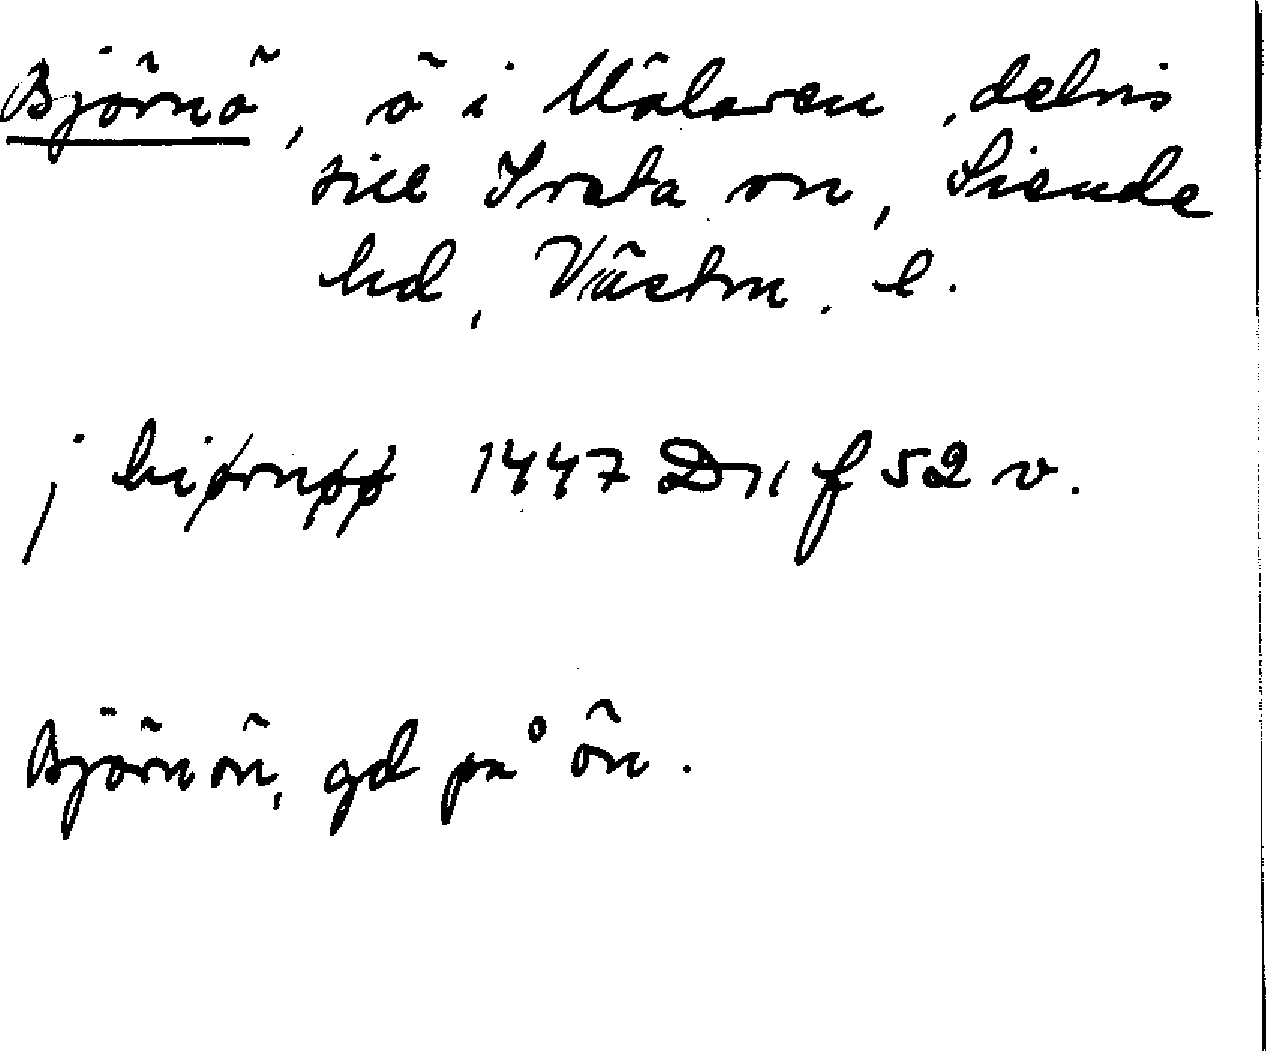 Björnö, ö i Mälaren, delvis
till Irsta sn, Siende
hd, Västm. l.
j biørnøø 1447 D 11 f 52 v.
Björnön, gd på ön.